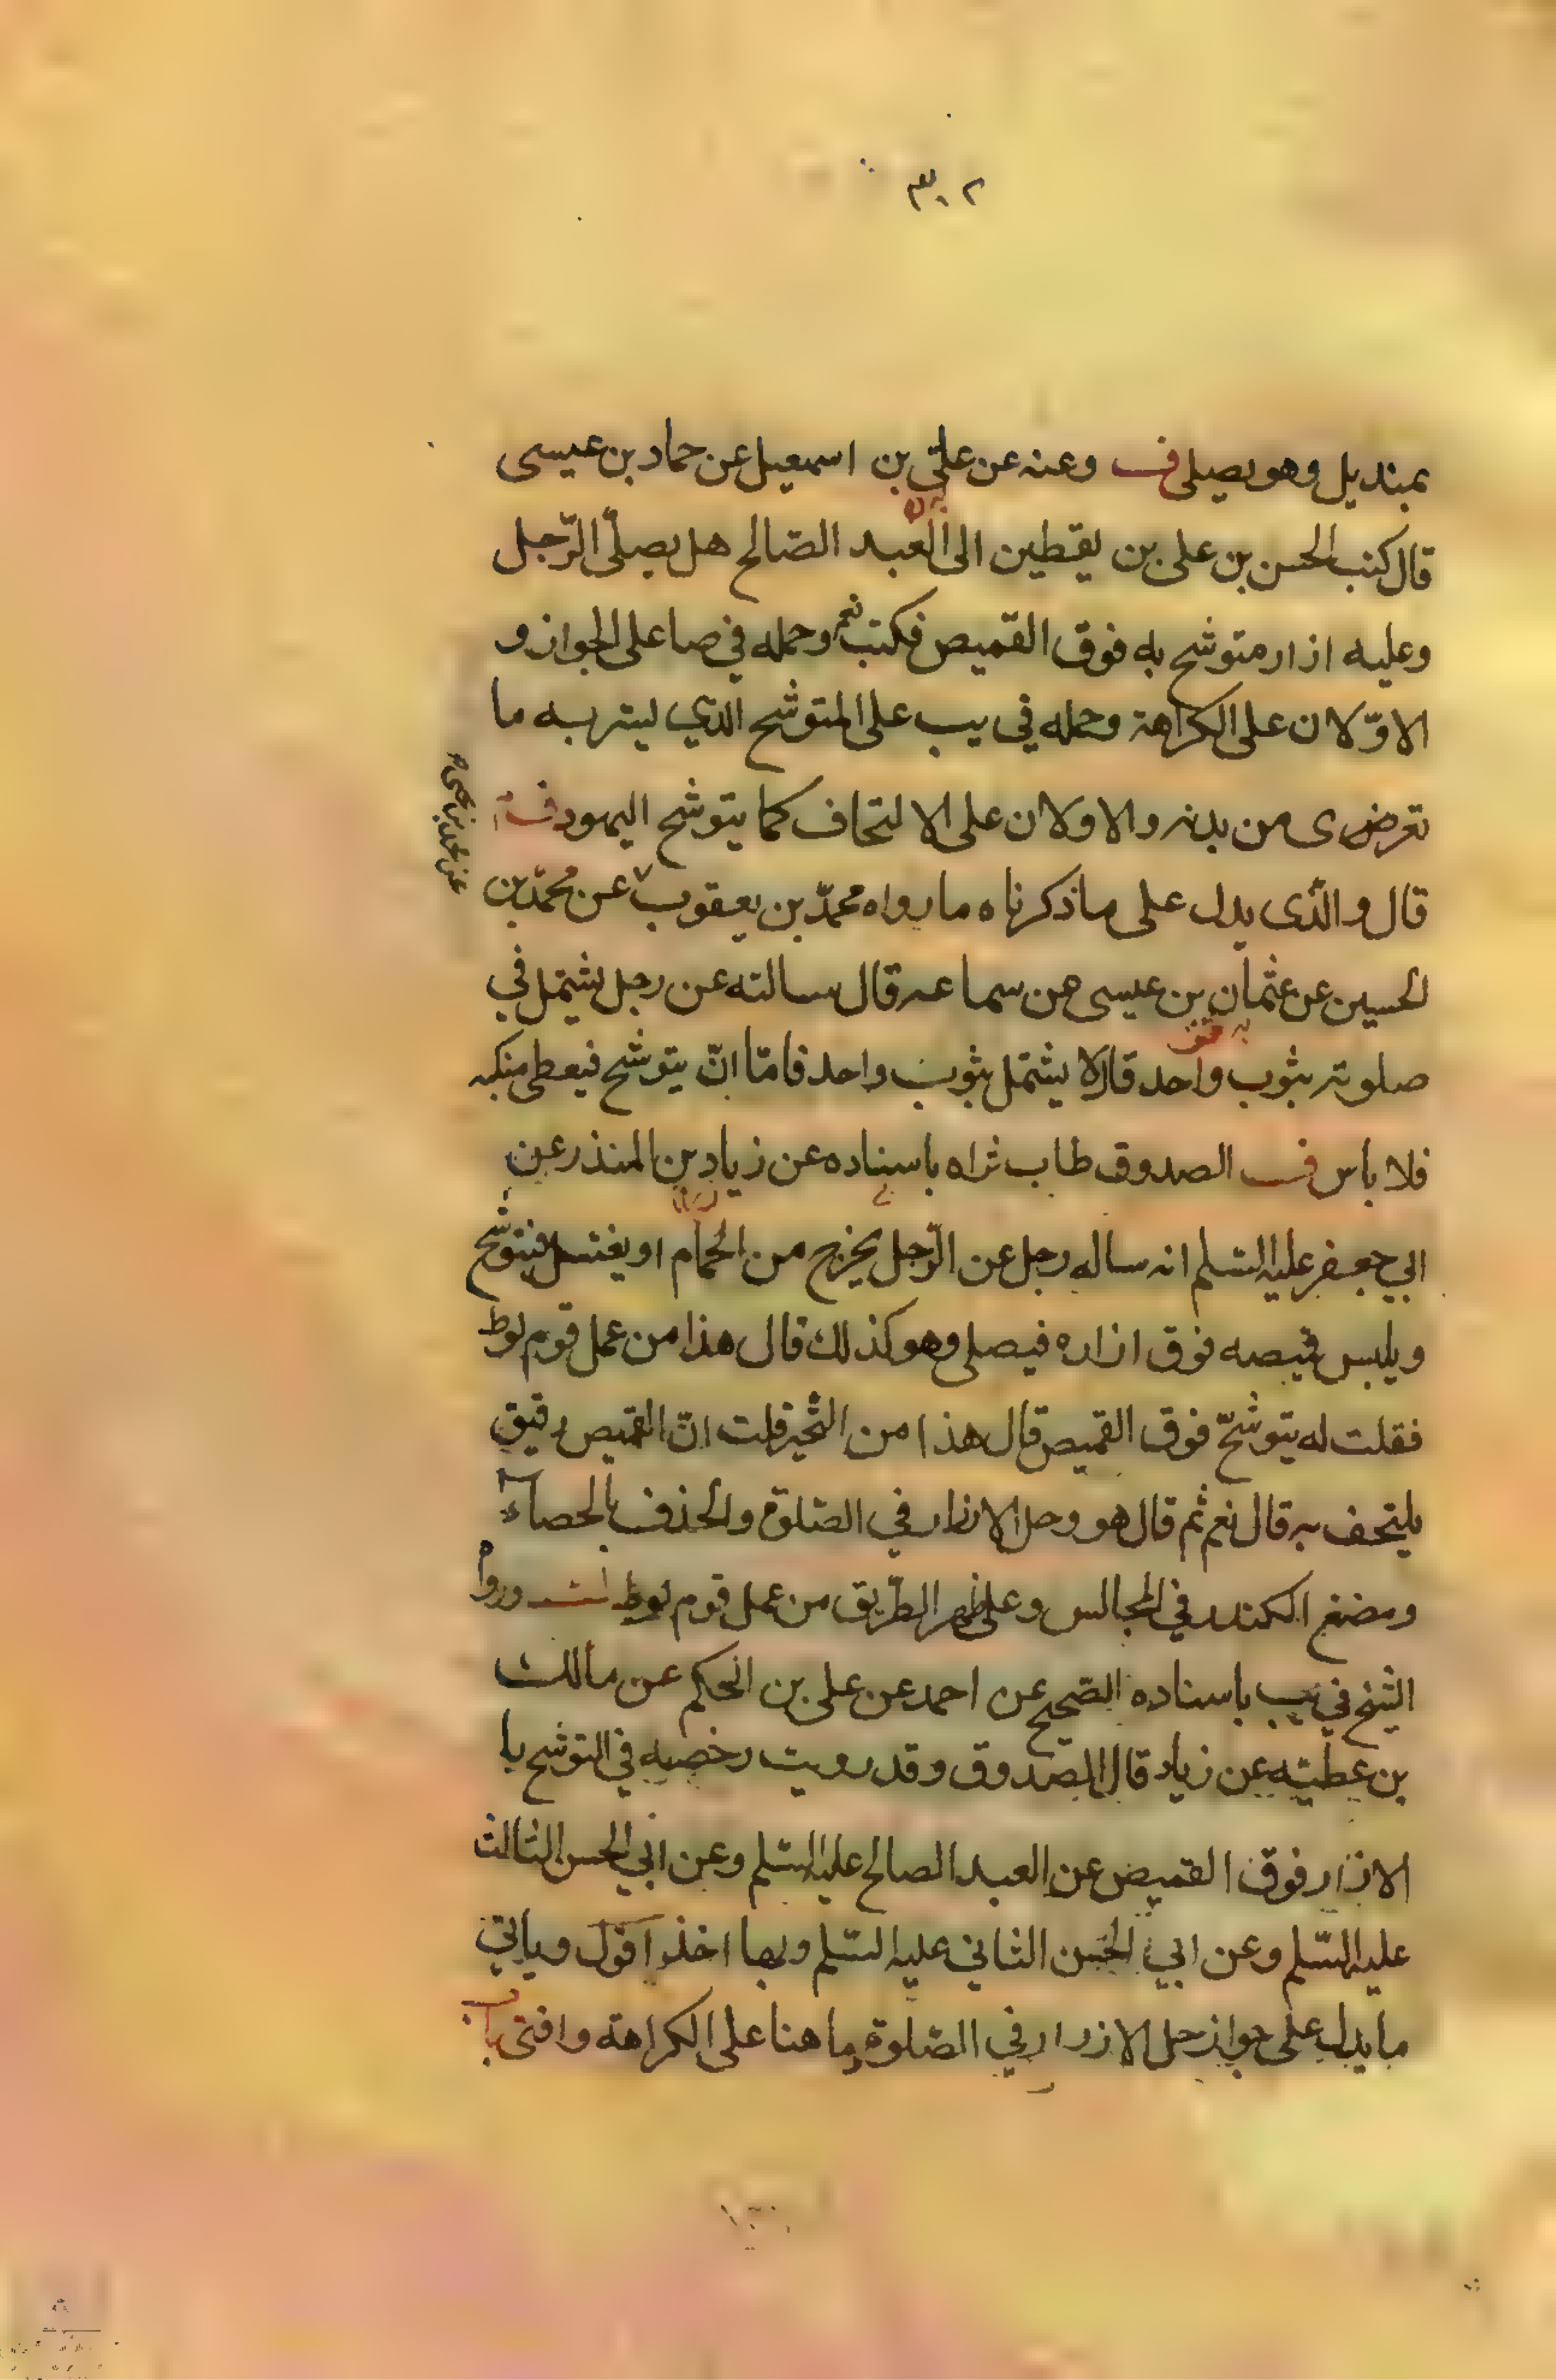 ٣٠٢
بمنديل وهو يصلى ف وعنه عن علي بن اسمعيل عن حماد بن عيسى
قال كتب الحسن بن على بن يقطين الى العبد الصّالح هل يصلّى الرّجل
وعليه ازار متوشح به فوق القميص فكتب نعم وحمله في صا على الجواز و
الاوّلان على الكراهة وحمله في يب على المتوشح الذي ليتربه ما
تعرض ى من بدنه والاولان على الالتحاف كما يتوشح اليهود
قال والّذى يدل على ما ذكرناه ما رواه محمّد بن يعقوب عن محمّد بن
عن محمد بن يحيى
لحسين عن عثمان بن عيسى عن سماعه قال سالته عن رجل يشتمل في
صلوته بثوب واحد قال لا يشتمل بثوب واحد فامّا انّ يتوشح فيغطى منكبه
فلا باس ف الصدوق طاب ثراه باسناده عن زياد بن المنذر عن
ابي جعفر عليه السّلم انه ساله رجل عن الرّجل يخرج من الحمّام او يغتسل فيتوشح
ويلبس قميصه فوق ازاره فيصلى وهو كذلك قال هذا من عمل قوم لوط
فقلت له يتوشحّ فوق القميص قال هذا من التّجبر قلت انّ القميص رقيق
يلتحف به قال نعم ثم قال هو وحل الازرار في الصّلوة والخذف بالحصاء
ومضغ الكندر في المجالس وعلى ظهر الطّريق من عمل قوم لوط ورواه
الشيخ في يب باسناده الصّحيح عن احمد عن على بن الحكم عن مالك
بن عطيّه عن زياد قال الصّدوق وقد رويت رخصه في التوشح با
الازار فوق القميص عن العبد الصالح عليه السّلم وعن ابي الحسن الثالث
عليه السّلم وعن ابي الحسن الثاني عليه السّلم وبها اخذ اقول وياتي
ما يدل على جواز حل الازرار في الصّلوة وما هنا على الكراهة وافتى